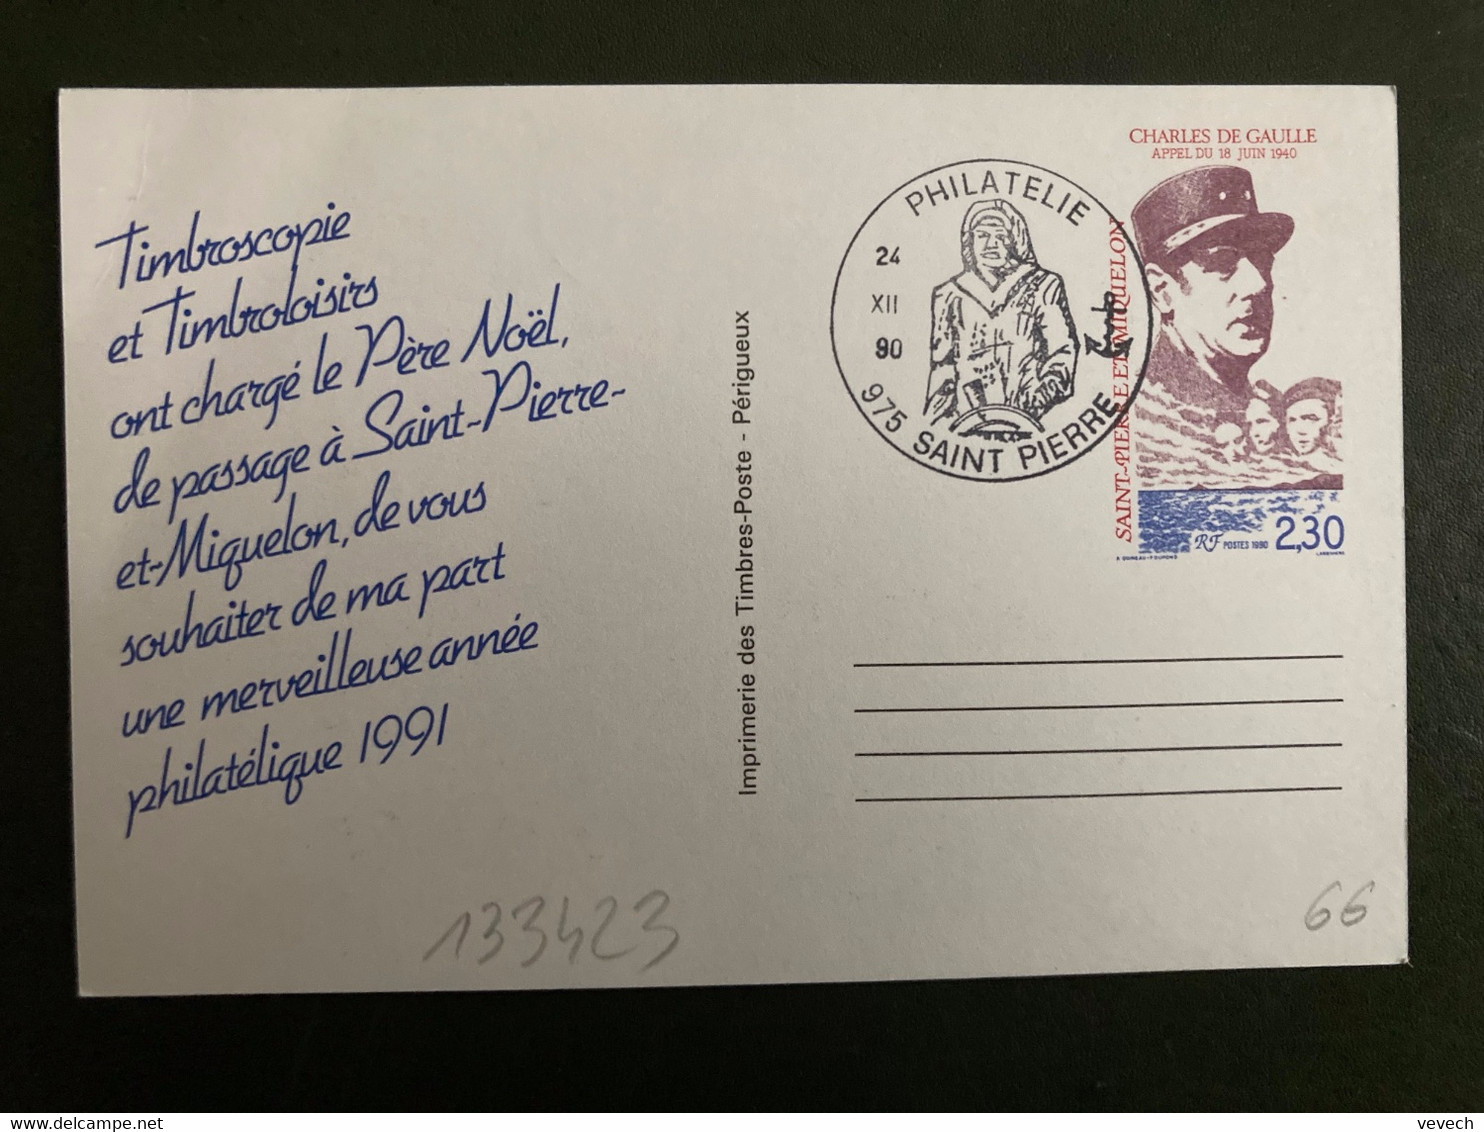 Timbroscopie
et Timbroloisirs
ont chargé le Père Noël,
de passage à Saint-Pierre-
et-Miquelon, de vous
souhaiter de ma part
une merveilleuse année
philatélique 1991
133423
Imprimerie des Timbres-Poste - Périgueux
PHILATELIE
24
XII
90
975 SAINT PIERRE
CHARLES DE GAULLE
APPEL DU 18 JUIN 1940
SAINT-PIERRE ET MIQUELON
RF POSTES 1990 2,30
66
vevech